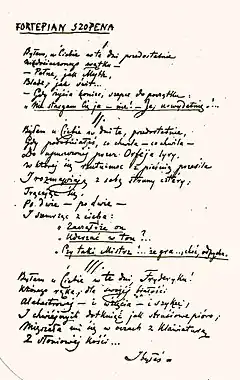 FORTEPIAN SZOPENA
I
Byłem u Ciebie w te dni przedostatnie
Niedocieczonego wątku –
– Pełne, jak Mythe,
Blade, jak świt...
– Gdy życia koniec, szepce do początku:
„Nie stargam Cię ja – nie! – Ja, uwydatnię!...
II
Byłem u Ciebie w dni te, przedostatnie,
Gdy podobniałeś, co chwila – co chwila –
Do upuszczonej przez Orfeja liry,
W której się rzutu-moc z pieśnią przesila
I rozmawiają z sobą struny cztéry,
Trącając się,
Po dwie – po dwie –
I szemrząc z cicha:
„Zacząłże on
Uderzać w ton?...
Czy taki Mistrz!... że gra... choć, odpycha.
III
Byłem u Ciebie w te dni, Fryderyku!
Którego ręka, dla swojéj białości
Alabastrowéj – i wzięcia – i szyku,
I chwiejnych dotknięć jak strusiowe pióro,
Mięszała mi się w oczach z klawiaturą
Z słoniowéj kości...